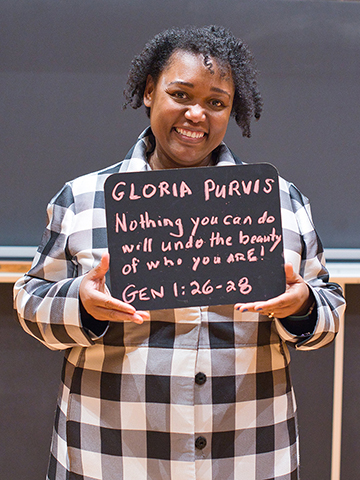 GLORIA PURVIS
Nothing you can do
will undo the beauty
of who you ARE!
GEN 1:26-28